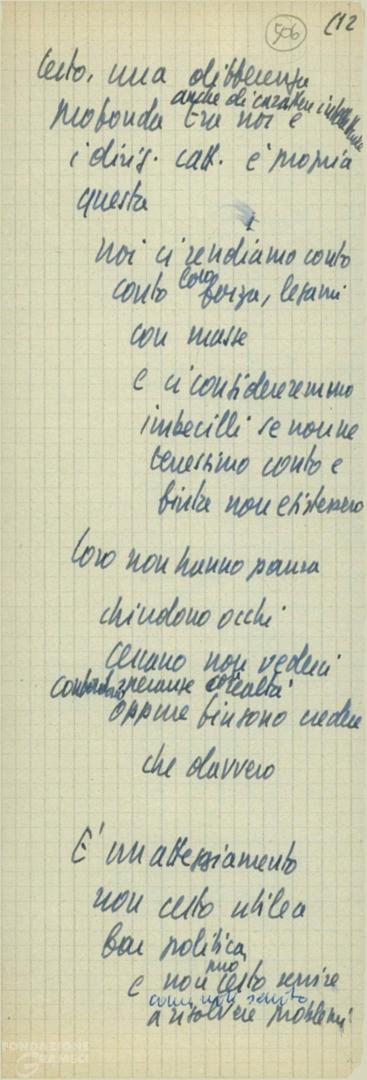 506 (12
Certo, una differenza
anche di carattere intellettuale
profonda tra noi e
i dirig. catt. è propria
questa
noi ci rendiamo conto
conto loro forza, legami
con masse
e ci considereremmo
imbecilli se non ne
tenessimo conto e
finta non esistessero
Loro non hanno paura
chiudono occhi
cercano non vederci
confondono speranze con realtà
oppure fingono credere
che davvero
E' un atteggiamento
non certo utile a
far politica,
e non può certo servire
come non servito
a risolvere problemi
FONDAZIONE
GRAMSCI